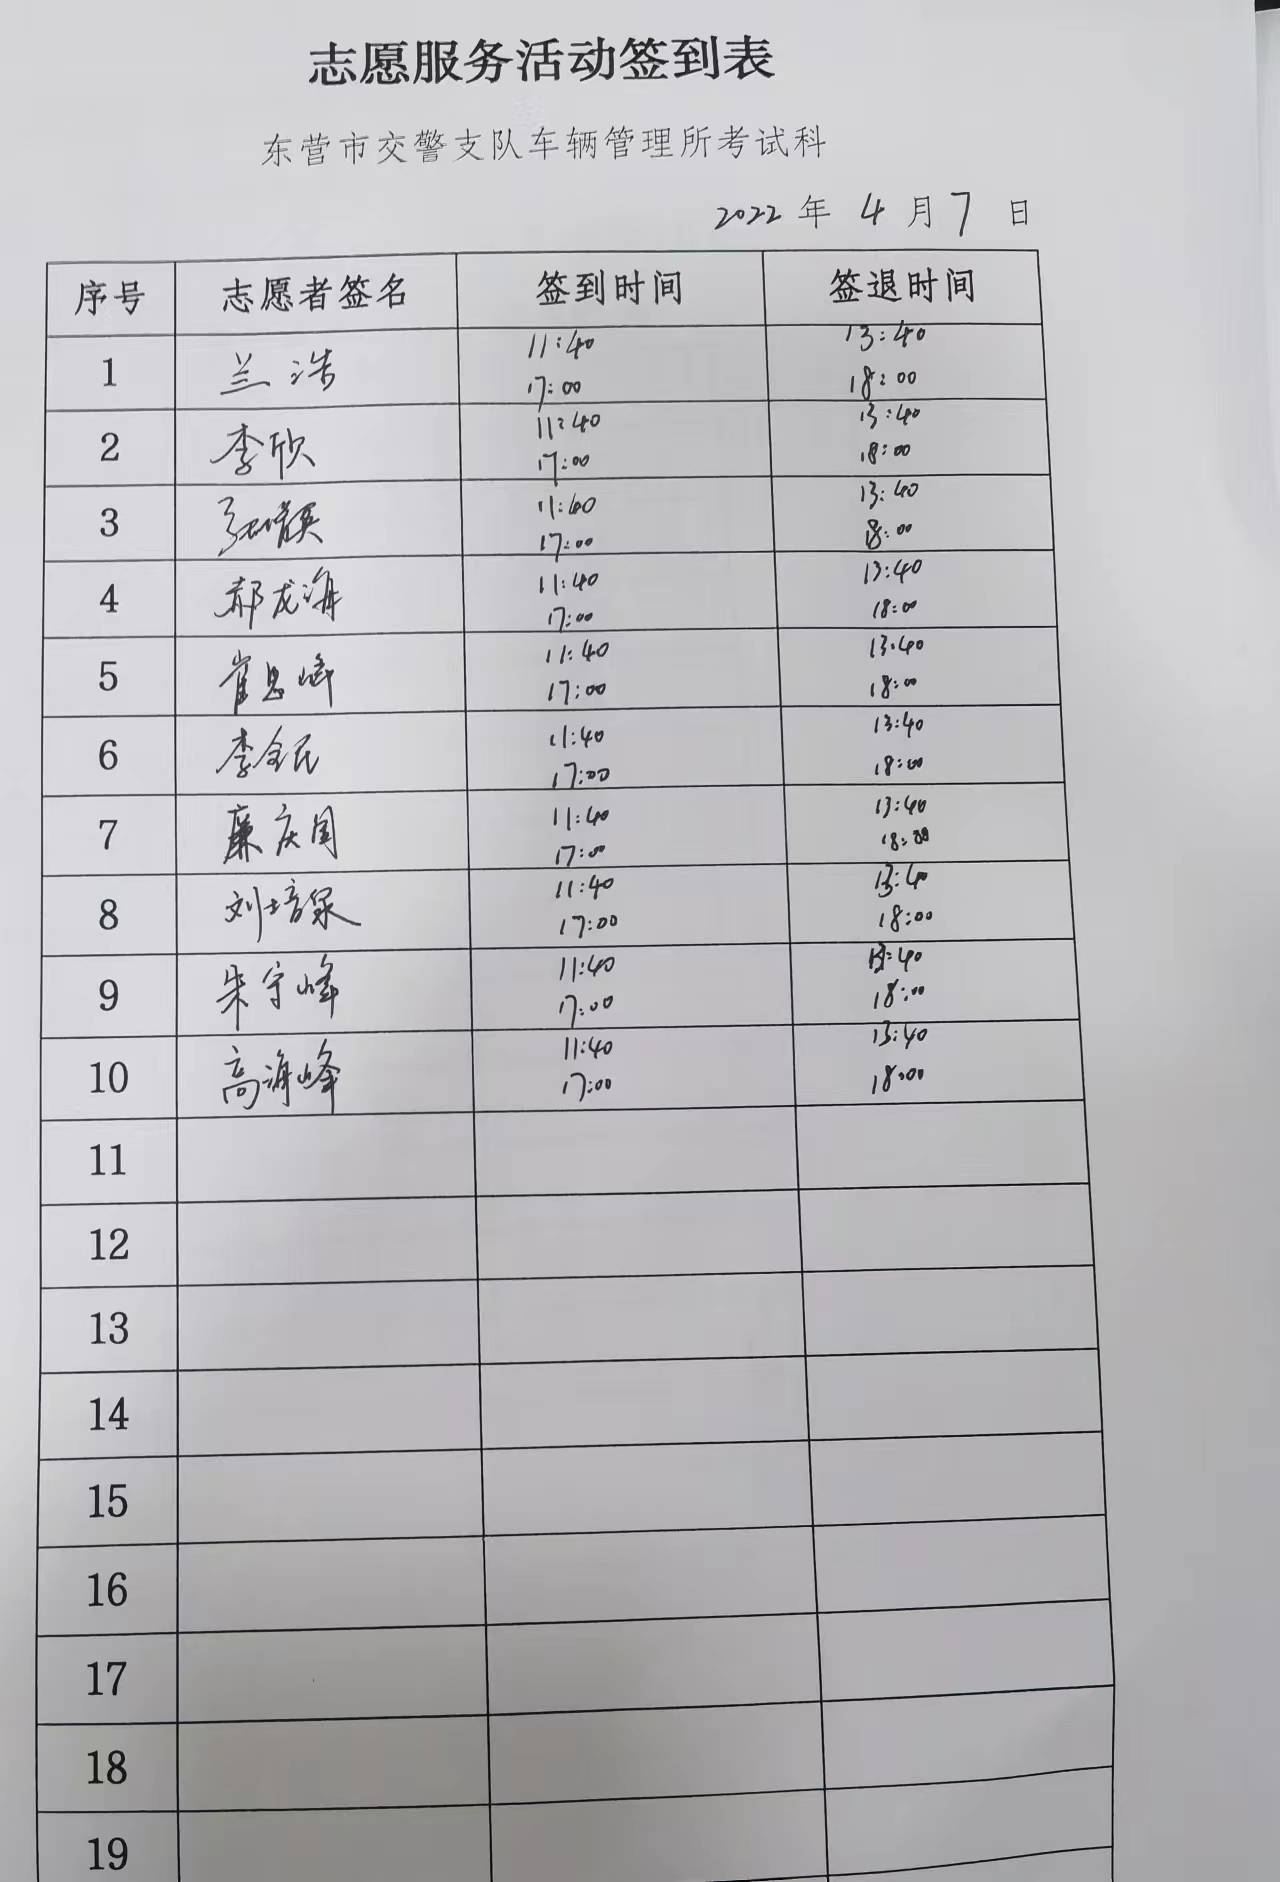 志愿服务活动签到表
东营市交警支队车辆管理所考试科
2022 年 4 月 7 日
序号 志愿者签名 签到时间 签退时间
1 兰浩 11:40 13:40
17:00 18:00
2 李欣 11:40 13:40
17:00 18:00
3 11:40 13:40
17:00 18:00
4 郝龙海 11:40 13:40
17:00 18:00
5 崔思峰 11:40 13:40
17:00 18:00
6 李全民 11:40 13:40
17:00 18:00
7 廉庆国 11:40 13:40
17:00 18:00
8 刘培泉 11:40 13:40
17:00 18:00
9 朱宁峰 11:40 13:40
17:00 18:00
10 高海峰 11:40 13:40
17:00 18:00
11
12
13
14
15
16
17
18
19